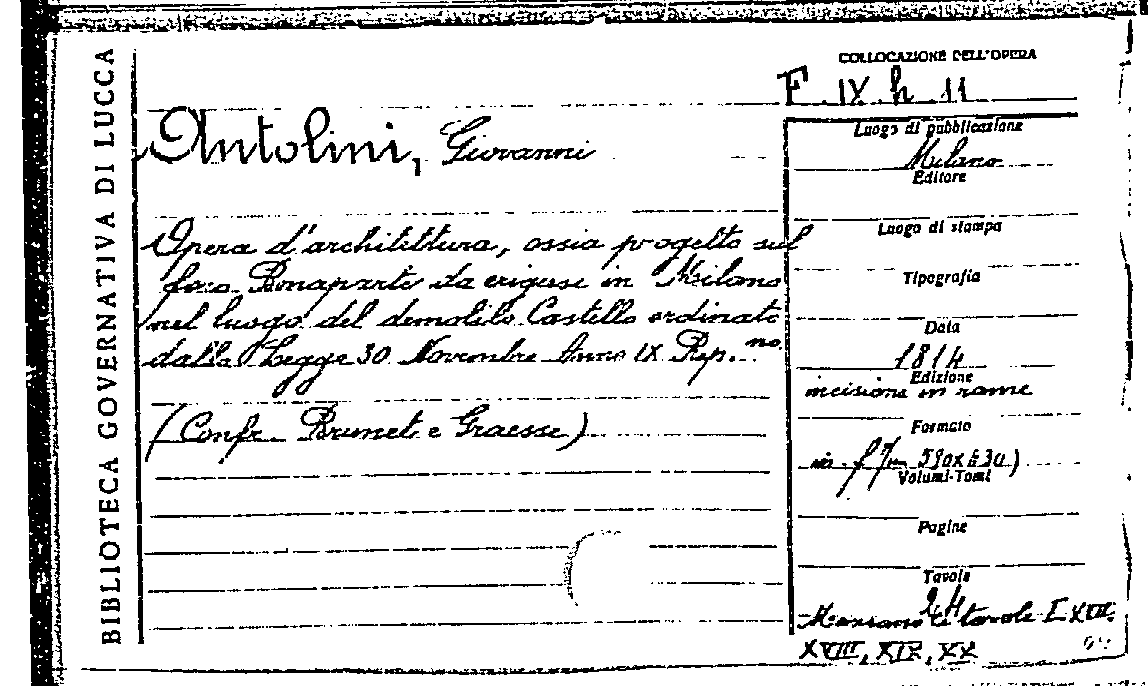 BIBLIOTECA GOVERNATIVA DI LUCCA
COLLOCAZIONE DELL'OPERA
F. IX. h. 11
Antolini, Giovanni
Opera d'architettura, ossia progetto sul
foro Bonaparte da erigersi in Milano
nel luogo del demolito Castello ordinato
dalla Legge 30 Novembre Anno IX Rep.no
(Confr. Brunet e Graesse)
Luogo di pubblicazione
Milano
Editore
Luogo di stampa
Tipografia
Data
1814
Edizione
incisione in rame
Formato
in f
Volumi-Tomi
Pagine
Tavole
24
Mancano le tavole I, XVII,
XVIII, XIX, XX